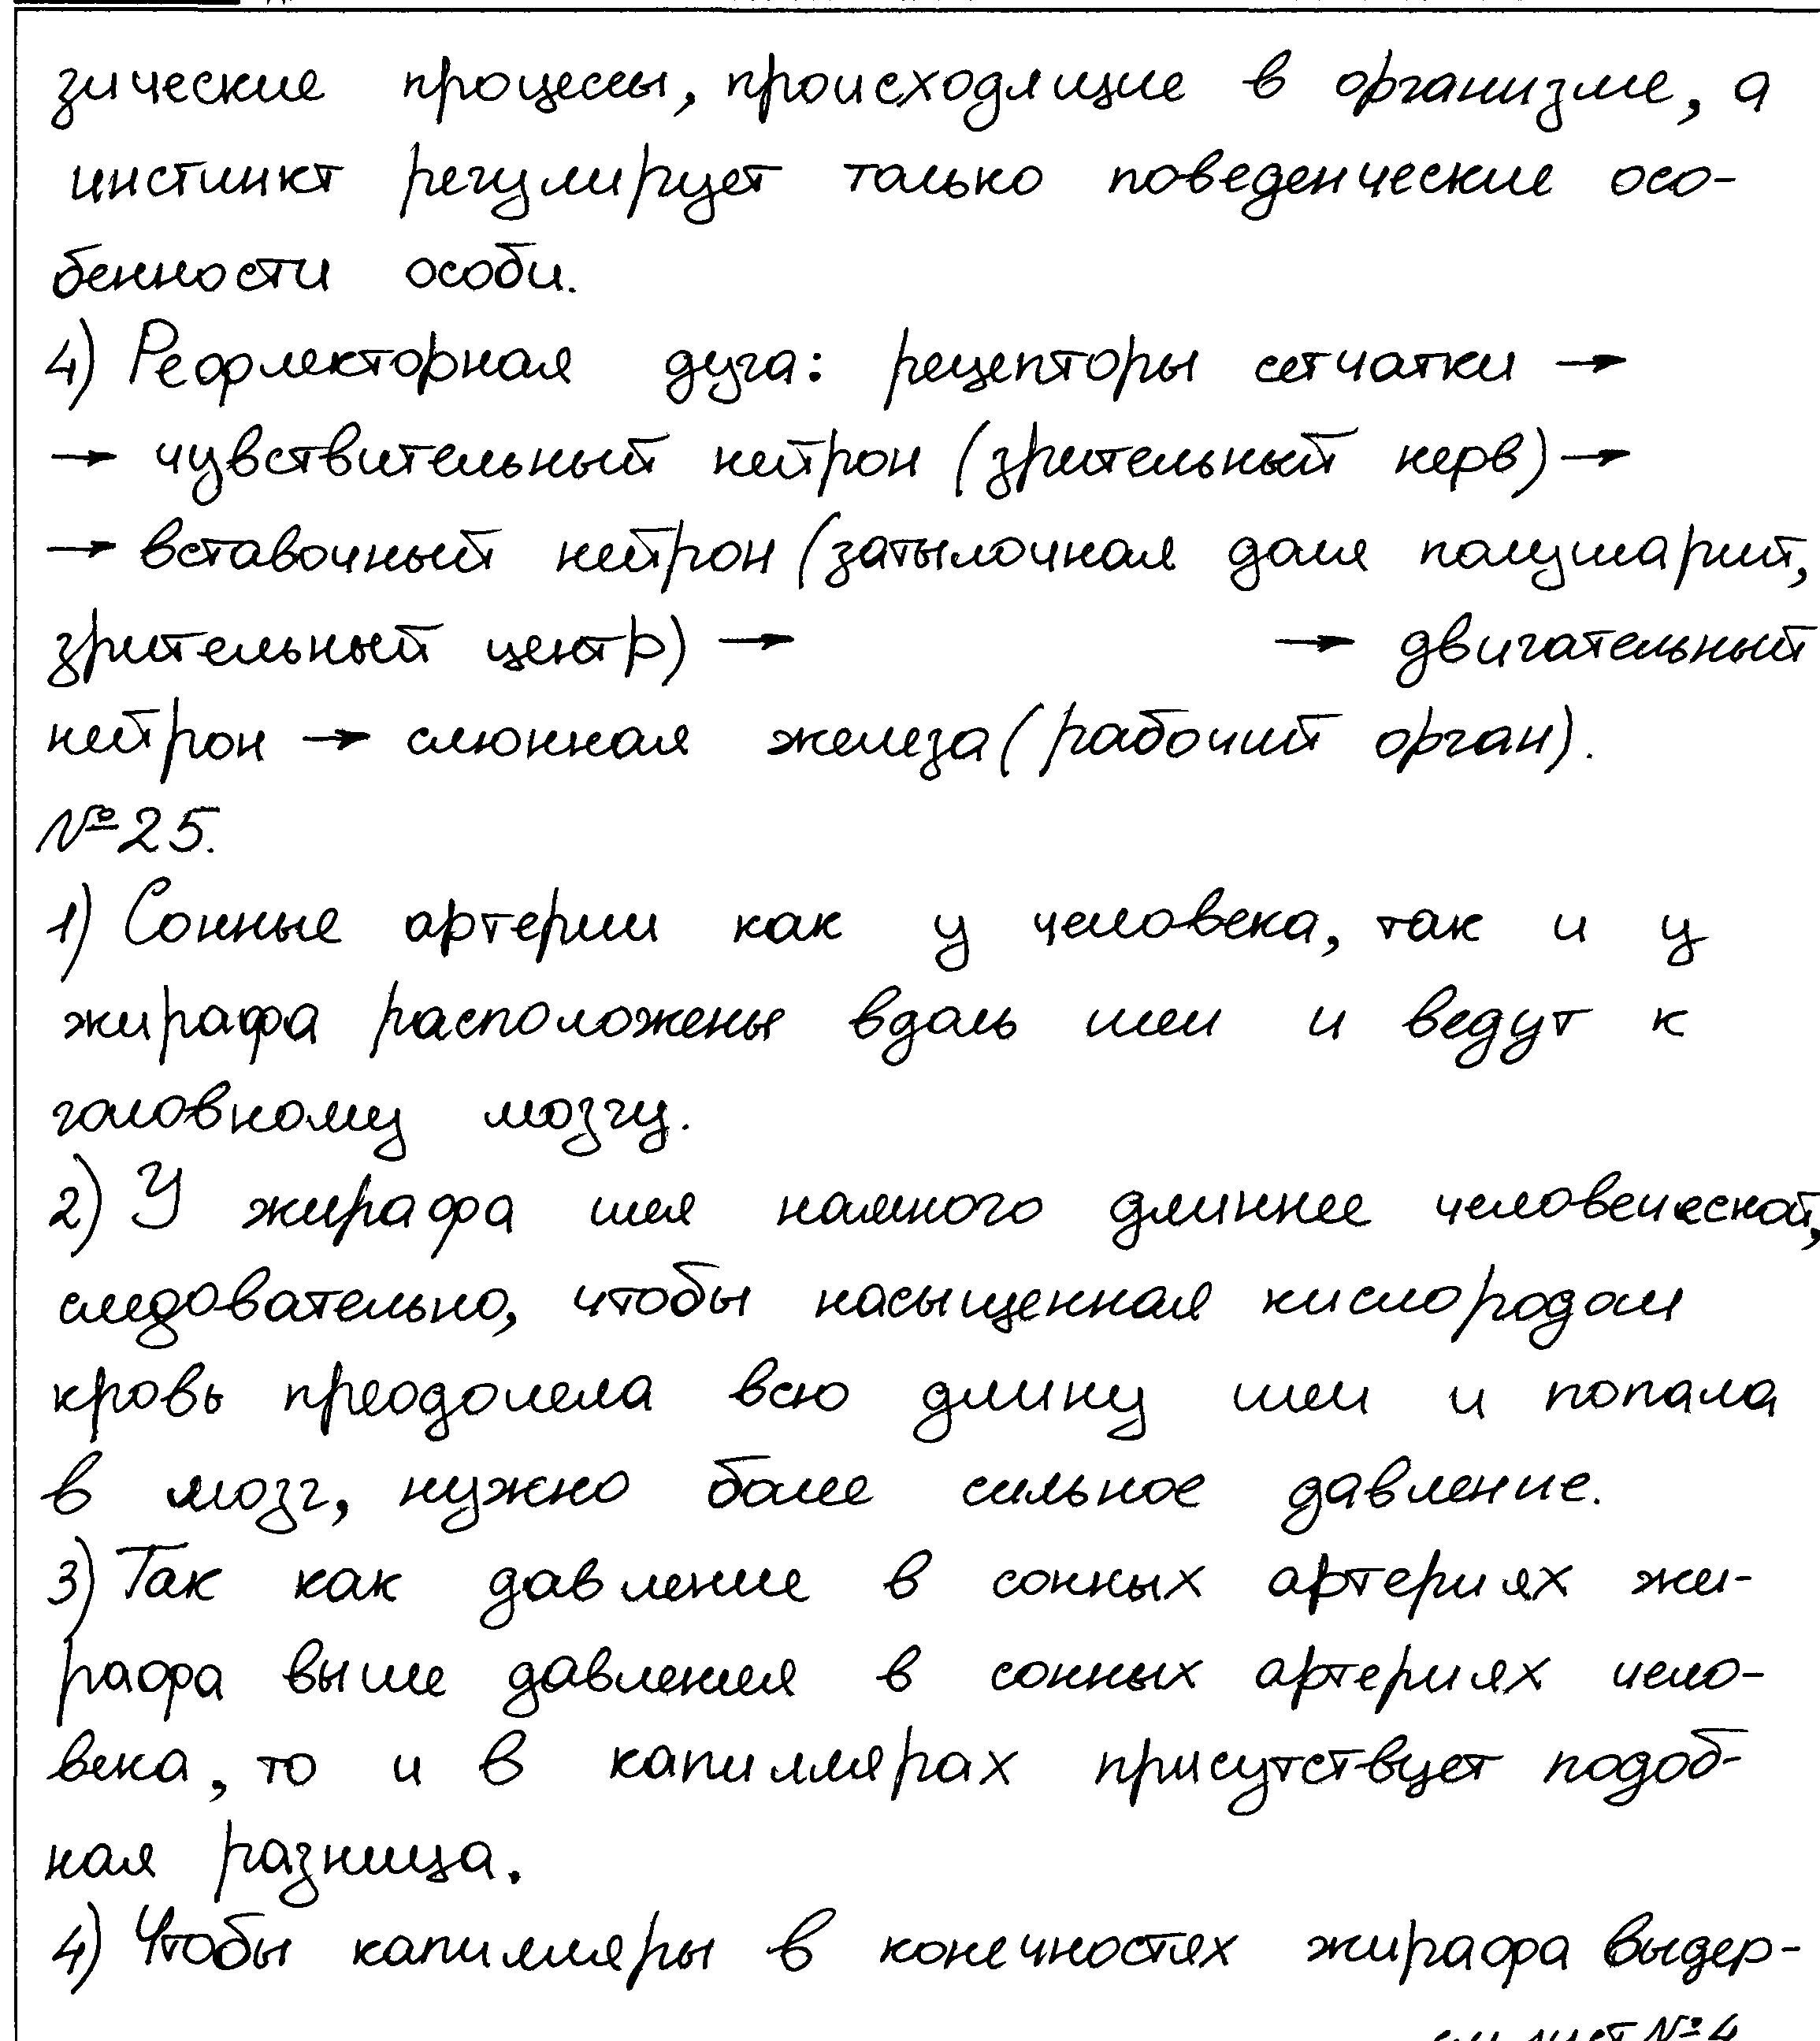 зические процессы, происходящие в организме, а
инстинкт регулирует только поведенческие осо-
бенности особи.
4) Рефлекторная дуга: рецепторы сетчатки →
→ чувствительный нейрон (зрительный нерв) →
→ вставочный нейрон (затылочная доля полушарий,
зрительный центр) → → двигательный
нейрон → слюнная железа (рабочий орган).
№25.
1) Сонные артерии как у человека, так и у
жирафа расположены вдоль шеи и ведут к
головному мозгу.
2) У жирафа шея намного длиннее человеческой,
следовательно, чтобы насыщенная кислородом
кровь преодолела всю длину шеи и попала
в мозг, нужно более сильное давление.
3) Так как давление в сонных артериях жи-
рафа выше давления в сонных артериях чело-
века, то и в капиллярах присутствует подоб-
ная разница.
4) Чтобы капилляры в конечностях жирафа выдер-
см лист №4